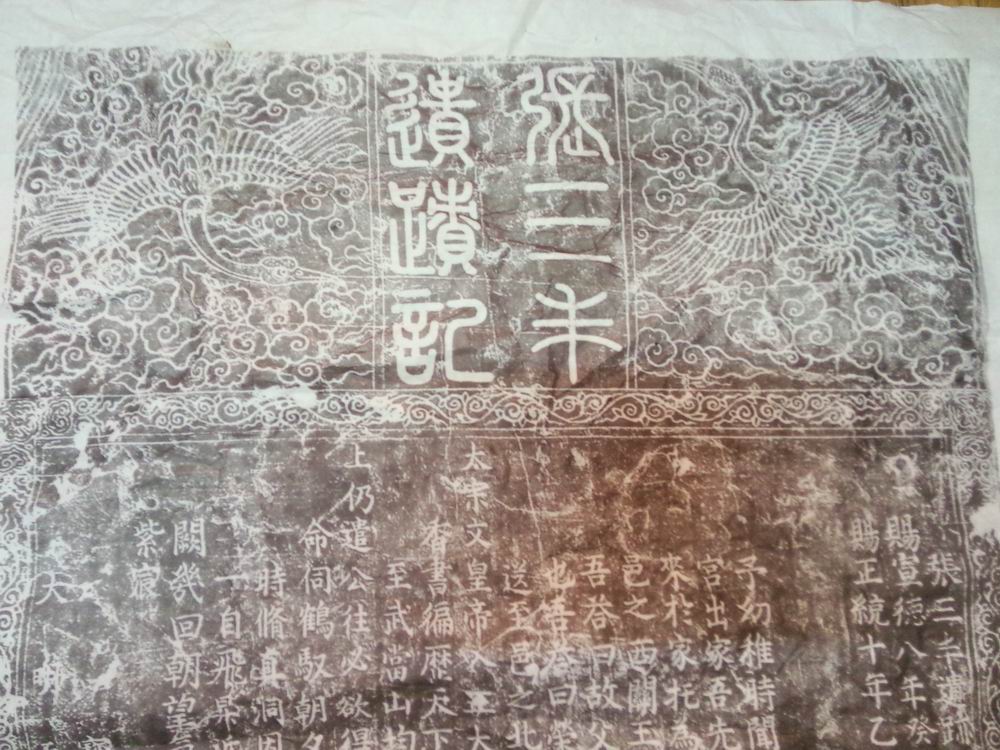 張三丰
遺蹟記
張三丰遺跡
賜宣德八年癸
賜正統十年乙
予幼稚時聞
宮出家吾先
來於家托為
邑之西關王
吾答曰故父
也答曰
送至邑之北
太宗文皇帝入大
香書徧歷天下
至武當山均
上仍遣公往必欲得
命伺鶴馭朝夕
時脩真洞
一自飛昇
闕幾回朝望
紫宸
天